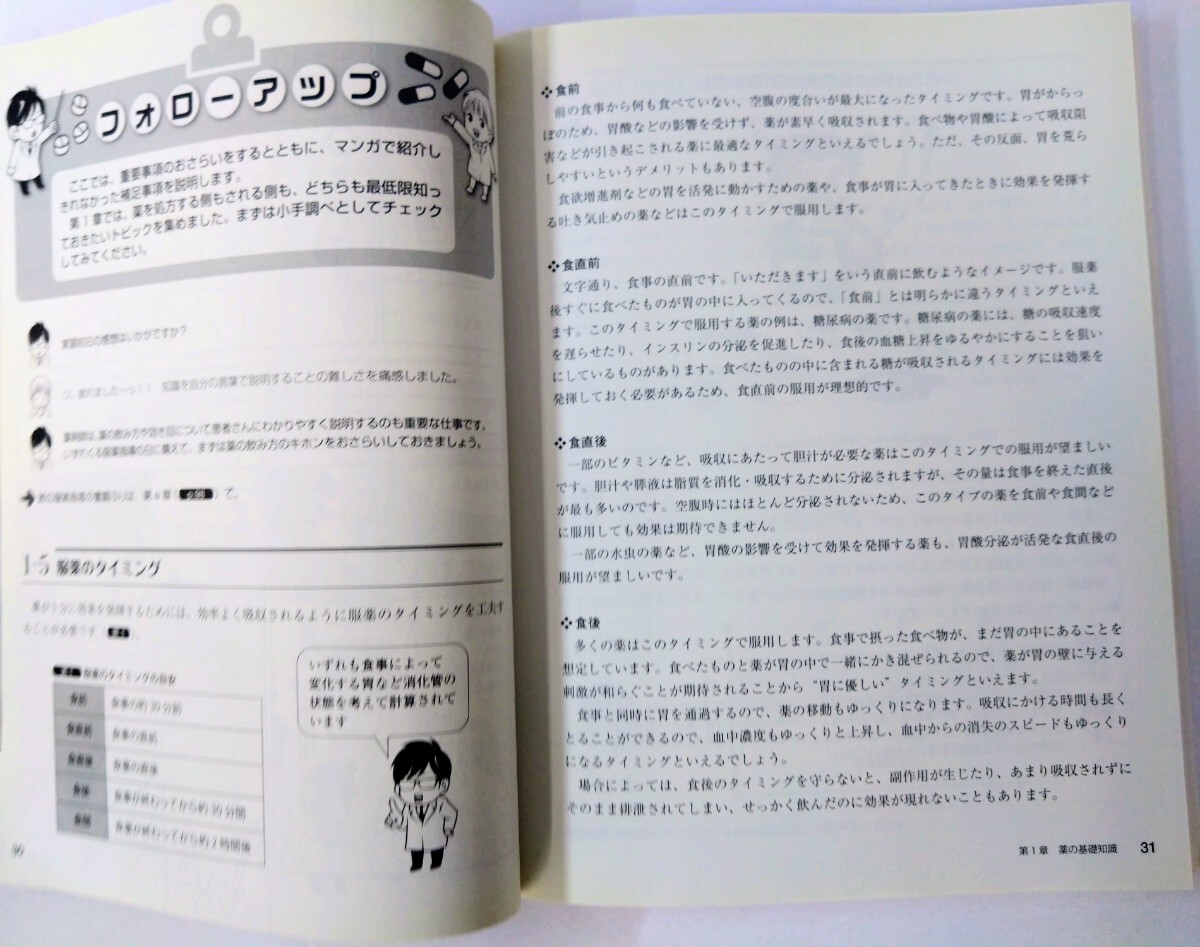 フォローアップ
ここでは、重要事項のおさらいをするとともに、マンガで紹介し
きれなかった補足事項を説明します。
第1章では、薬を処方する側もされる側も、どちらも最低限知っ
ておきたいトピックを集めました。まずは小手調べとしてチェック
してみてください。
実習初日の感想はいかがですか?
つ、疲れましたーっ!! 知識を自分の言葉で説明することの難しさを痛感しました。
薬剤師は、薬の飲み方や効き目について患者さんにわかりやすく説明するのも重要な仕事です。
いずれくる服薬指導の日に備えて、まずは薬の飲み方のキホンをおさらいしておきましょう。
1-5 服薬のタイミング
薬が十分に効果を発揮するためには、効率よく吸収されるように服薬のタイミングを工夫す
ることが必要です
服薬のタイミングの目安
食前 食事の約30分前
食直前 食事の直前
食直後 食事の直後
食後 食事が終わってから約30分間
食間 食事が終わってから約2時間後
いずれも食事によって
変化する胃など消化管の
状態を考えて計算されて
います
❖食前
前の食事から何も食べていない、空腹の度合いが最大になったタイミングです。胃がからっ
ぽのため、胃酸などの影響を受けず、薬が素早く吸収されます。食べ物や胃酸によって吸収阻
害などが引き起こされる薬に最適なタイミングといえるでしょう。ただ、その反面、胃を荒ら
しやすいというデメリットもあります。
食欲増進剤などの胃を活発に動かすための薬や、食事が胃に入ってきたときに効果を発揮す
る吐き気止めの薬などはこのタイミングで服用します。
❖食直前
文字通り、食事の直前です。「いただきます」をいう直前に飲むようなイメージです。服薬
後すぐに食べたものが胃の中に入ってくるので、「食前」とは明らかに違うタイミングといえ
ます。このタイミングで服用する薬の例は、糖尿病の薬です。糖尿病の薬には、糖の吸収速度
を遅らせたり、インスリンの分泌を促進したり、食後の血糖上昇をゆるやかにすることを狙い
にしているものがあります。食べたものの中に含まれる糖が吸収されるタイミングには効果を
発揮しておく必要があるため、食直前の服用が理想的です。
❖食直後
一部のビタミンなど、吸収にあたって胆汁が必要な薬はこのタイミングでの服用が望ましい
です。胆汁や膵液は脂質を消化・吸収するために分泌されますが、その量は食事を終えた直後
が最も多いのです。空腹時にはほとんど分泌されないため、このタイプの薬を食前や食間など
に服用しても効果は期待できません。
一部の水虫の薬など、胃酸の影響を受けて効果を発揮する薬も、胃酸分泌が活発な食直後の
服用が望ましいです。
❖食後
多くの薬はこのタイミングで服用します。食事で摂った食べ物が、まだ胃の中にあることを
想定しています。食べたものと薬が胃の中で一緒にかき混ぜられるので、薬が胃の壁に与える
刺激が和らぐことが期待されることから“胃に優しい”タイミングといえます。
食事と同時に胃を通過するので、薬の移動もゆっくりになります。吸収にかける時間も長く
とることができるので、血中濃度もゆっくりと上昇し、血中からの消失のスピードもゆっくり
になるタイミングといえるでしょう。
場合によっては、食後のタイミングを守らないと、副作用が生じたり、あまり吸収されずに
そのまま排泄されてしまい、せっかく飲んだのに効果が現れないこともあります。
第1章 薬の基礎知識 31